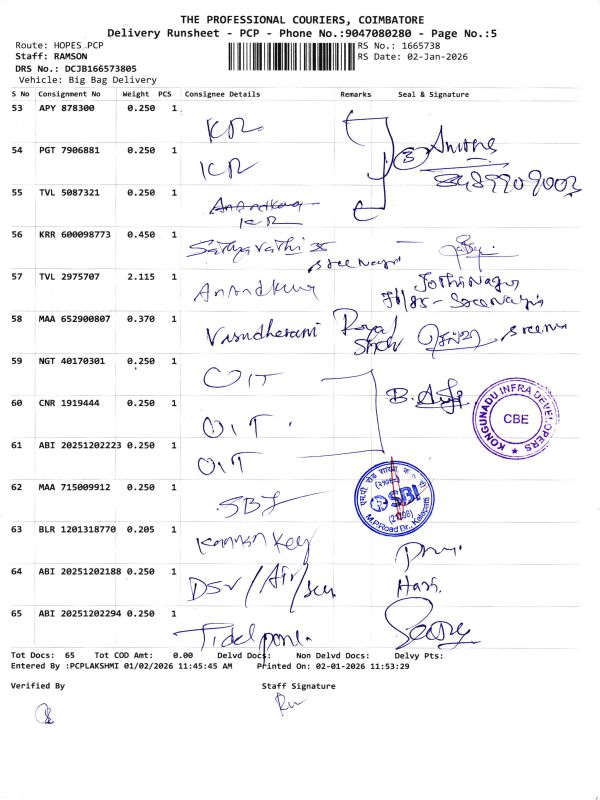 THE PROFESSIONAL COURIERS, COIMBATORE
Delivery Runsheet - PCP - Phone No.:9047080280 - Page No.:5
Route: HOPES PCP
RS No.: 1665738
Staff: RAMSON
RS Date: 02-Jan-2026
DRS No.: DCJB166573805
Vehicle: Big Bag Delivery
S No Consignment No Weight PCS Consignee Details Remarks Seal & Signature
53 APY 878300 0.250 1
KR
54 PGT 7906881 0.250 1
KR
3
55 TVL 5087321 0.250 1
KR
56 KRR 600098773 0.450 1
Sathyavathi
Sree Nagar
57 TVL 2975707 2.115 1
Anandkumar
Jothi Nagar
58 MAA 652900807 0.370 1
Royal
59 NGT 40170301 0.250 1
OIT
60 CNR 1919444 0.250 1
OIT
B.
KONGUNADU INFRA DEVELOPERS
CBE
61 ABI 20251202223 0.250 1
OIT
62 MAA 715009912 0.250 1
SBI
SBI
(21608)
M.P.Road Br., Kalapatti
63 BLR 1201318770 0.205 1
64 ABI 20251202188 0.250 1
DSV/Air/Sea
Hari
65 ABI 20251202294 0.250 1
Tidel
Tot Docs: 65 Tot COD Amt: 0.00 Delvd Docs: Non Delvd Docs: Delvy Pts:
Entered By :PCPLAKSHMI 01/02/2026 11:45:45 AM Printed On: 02-01-2026 11:53:29
Verified By
Staff Signature